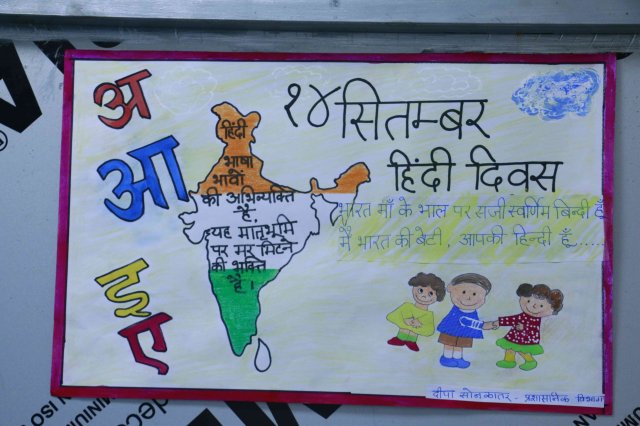 अ
आ
इ
ए
१४ सितम्बर
हिंदी दिवस
हिंदी
भाषा
भावों
की अभिव्यक्ति
है,
यह मातृभूमि
पर मर मिटने
की भक्ति
है।
भारत माँ के भाल पर सजी स्वर्णिम बिन्दी हूँ
मैं भारत की बेटी, आपकी हिन्दी हूँ......
दीपा सोनकातर - प्रशासनिक विभाग